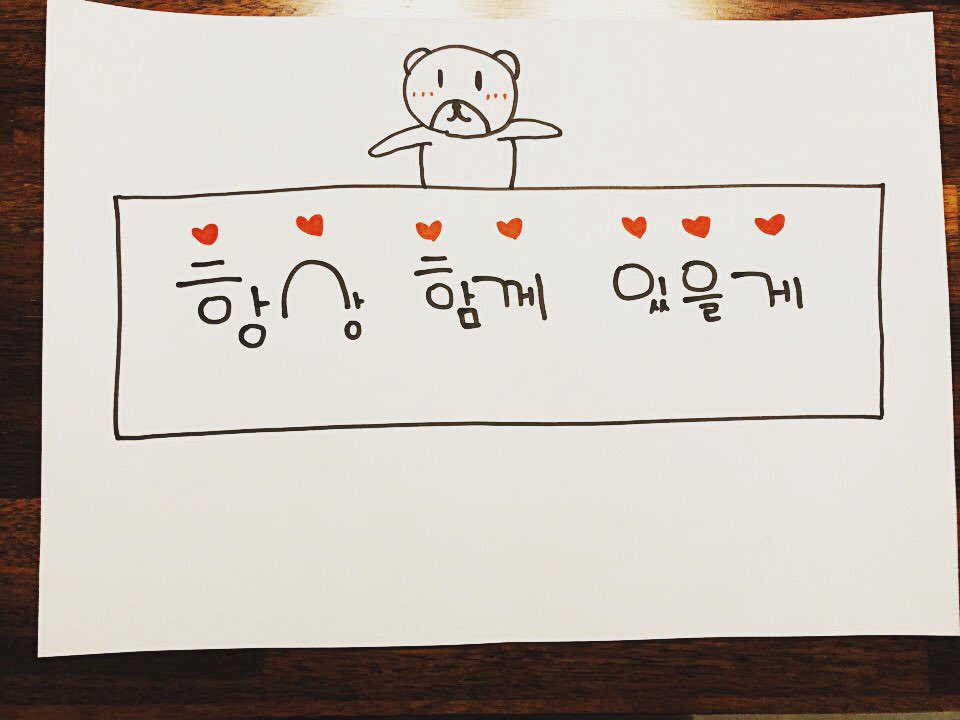 항상 함께 있을게